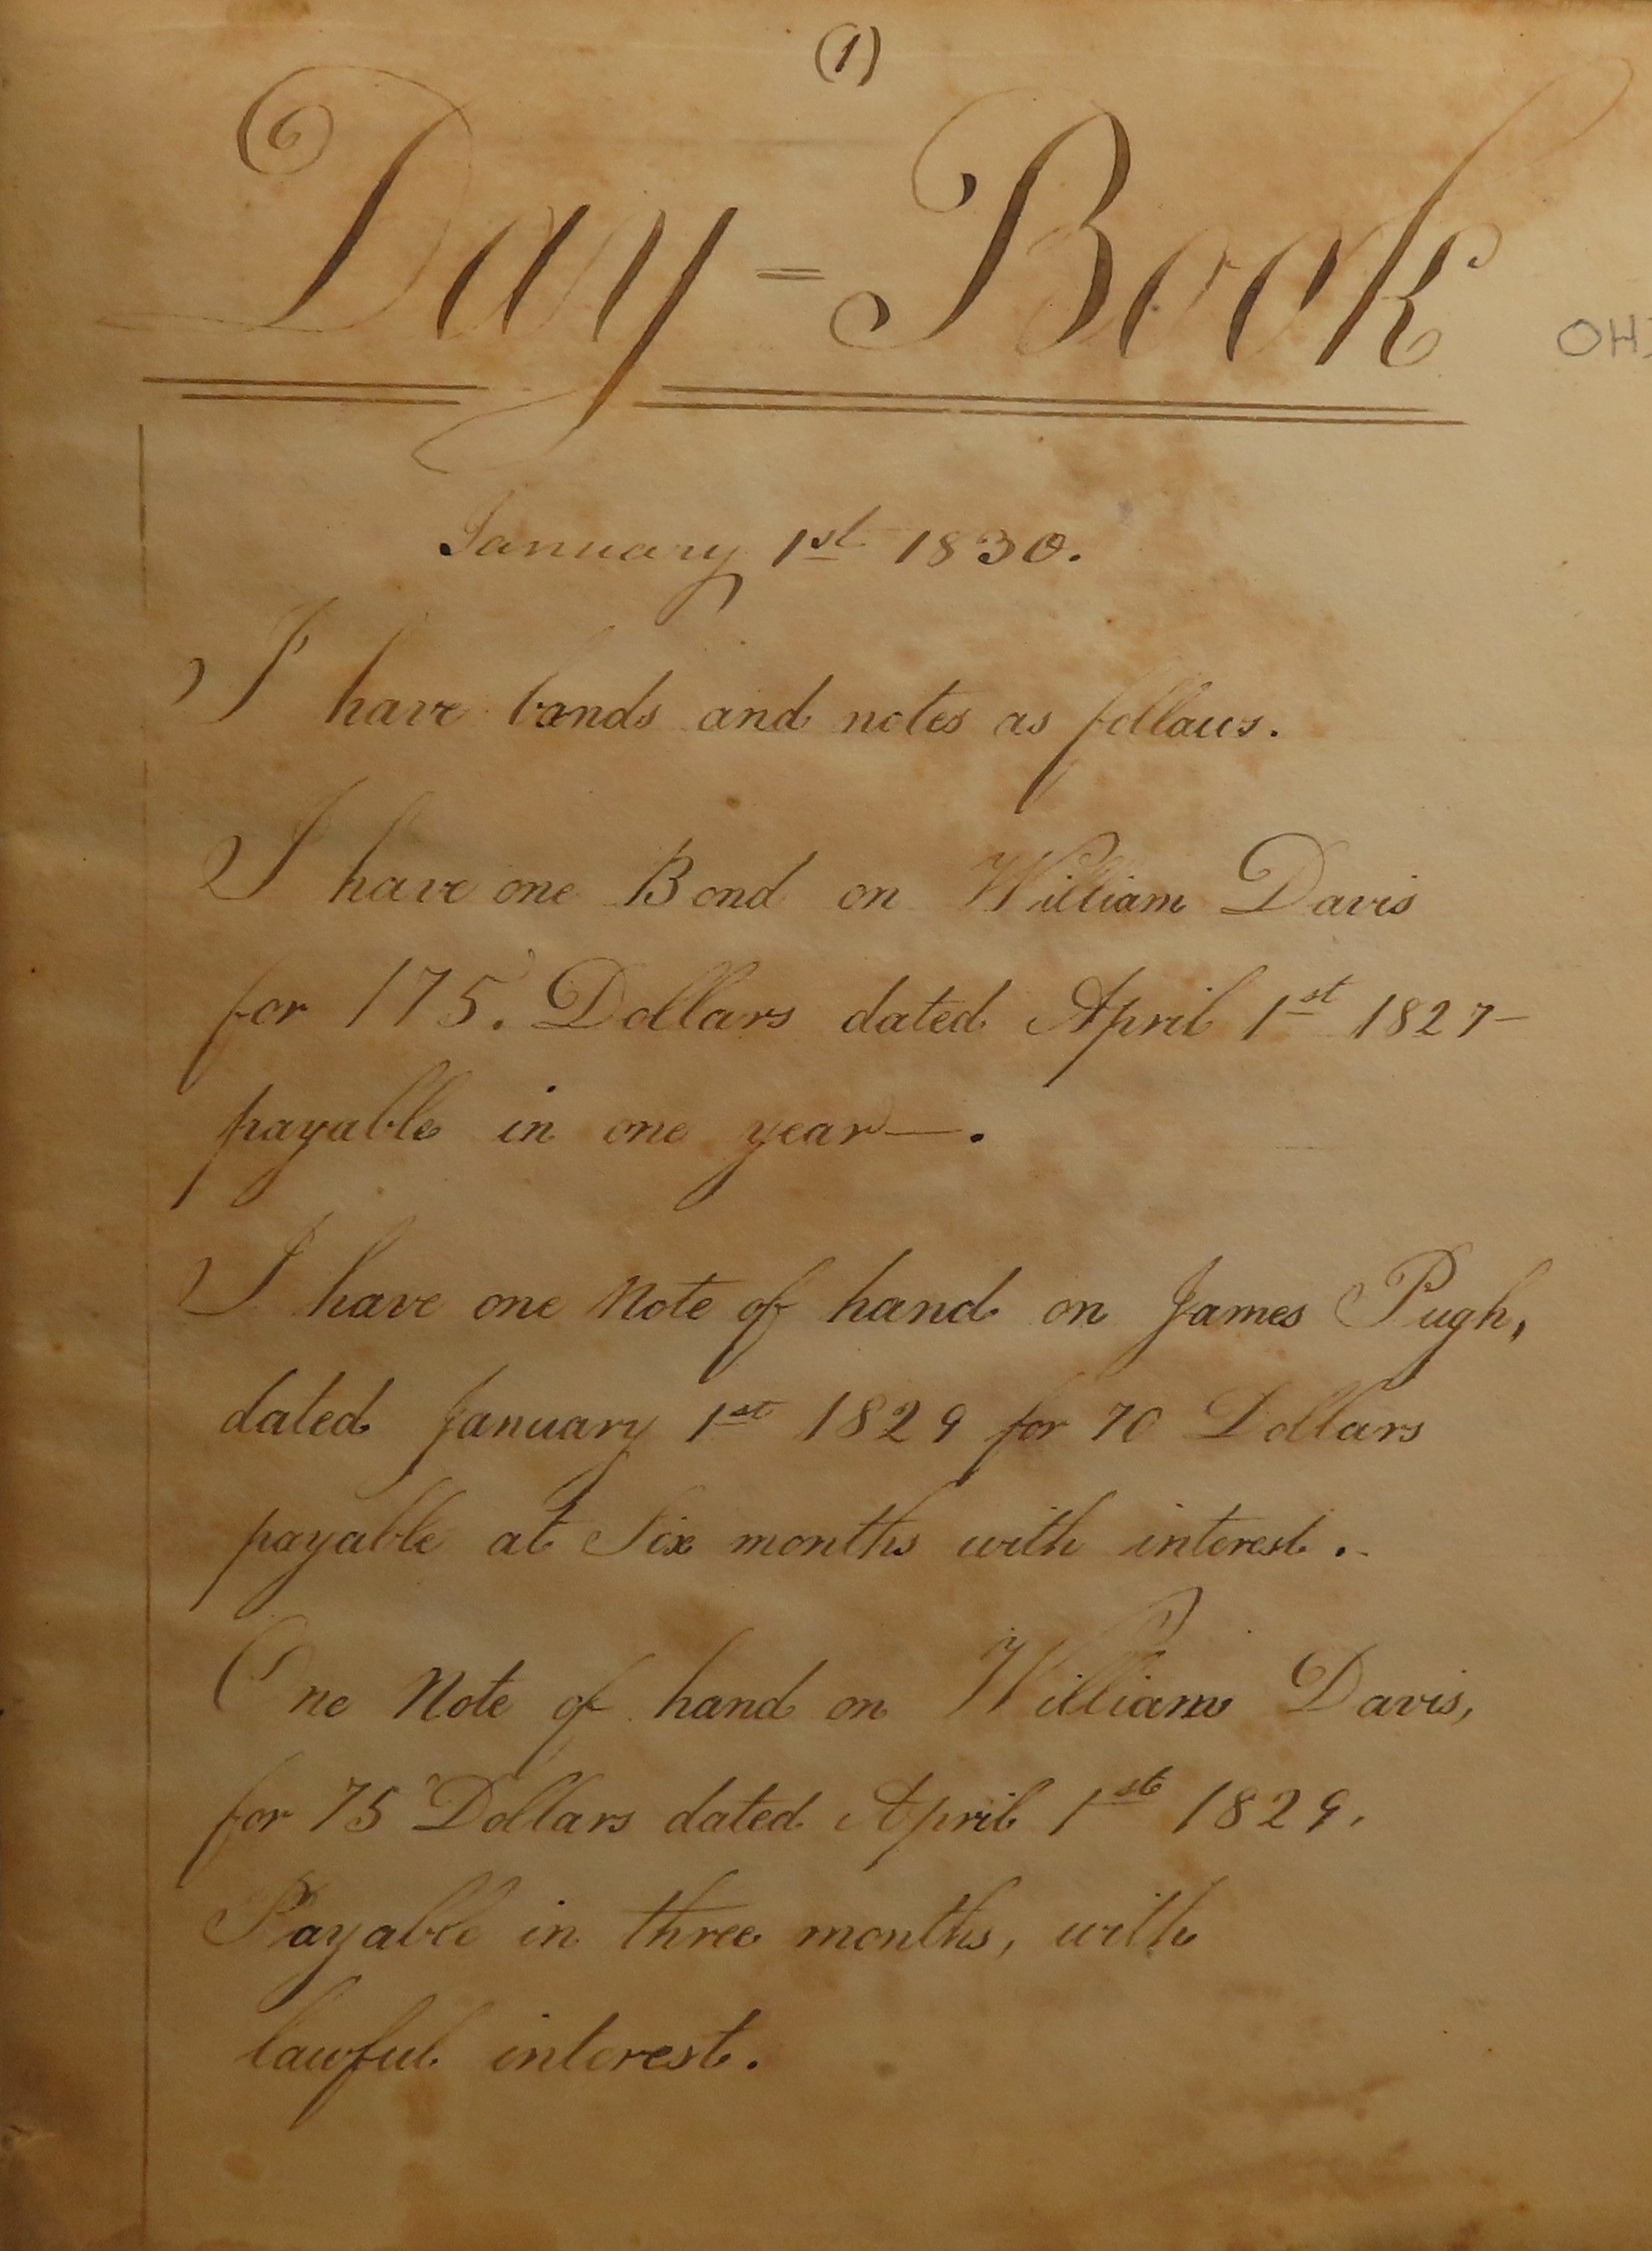 (1)
Day = Book
OHI
January 1st 1830.
I have bonds and notes as follows.
I have one Bond on William Davis
for 175. Dollars dated April 1st 1827-
payable in one year—.
I have one Note of hand on James Pugh,
dated January 1st 1829 for 70 Dollars
payable at Six months with interest.
One Note of hand on William Davis,
for 75 Dollars dated April 1st 1829.
Payable in three months, with
lawful interest.